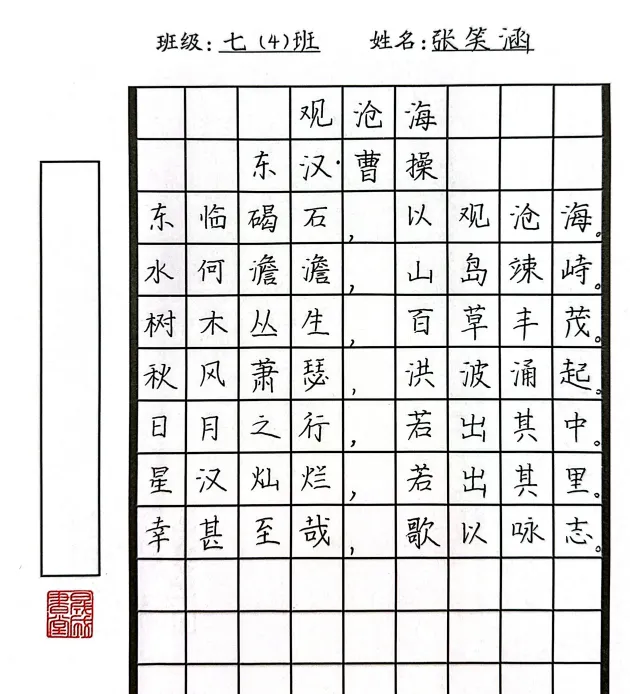 班级: 七(4)班 姓名: 张笑涵
观沧海
东汉·曹操
东临碣石,以观沧海。
水何澹澹,山岛竦峙。
树木丛生,百草丰茂。
秋风萧瑟,洪波涌起。
日月之行,若出其中。
星汉灿烂,若出其里。
幸甚至哉,歌以咏志。